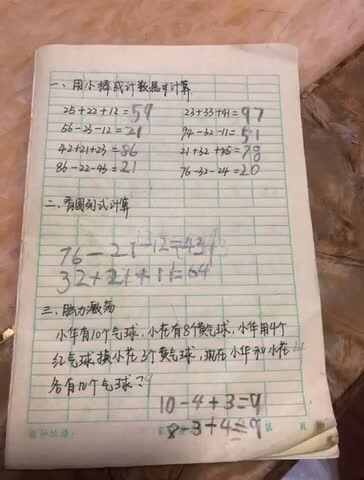 一、用小棒或计数器来计算
25+22+12=59 23+33+41=97
56-23-12=21 94-32-11=51
42+21+23=86 21+32+25=78
86-22-43=21 76-32-24=20
二、看图列式计算
76-21-12=43
32+21+11=64
三、脑力激荡
小华有10个气球，小花有8个黄气球，小华用4个
红气球换小花3个黄气球，现在小华和小花
各有几个气球？
10-4+3=9
8-3+4=9